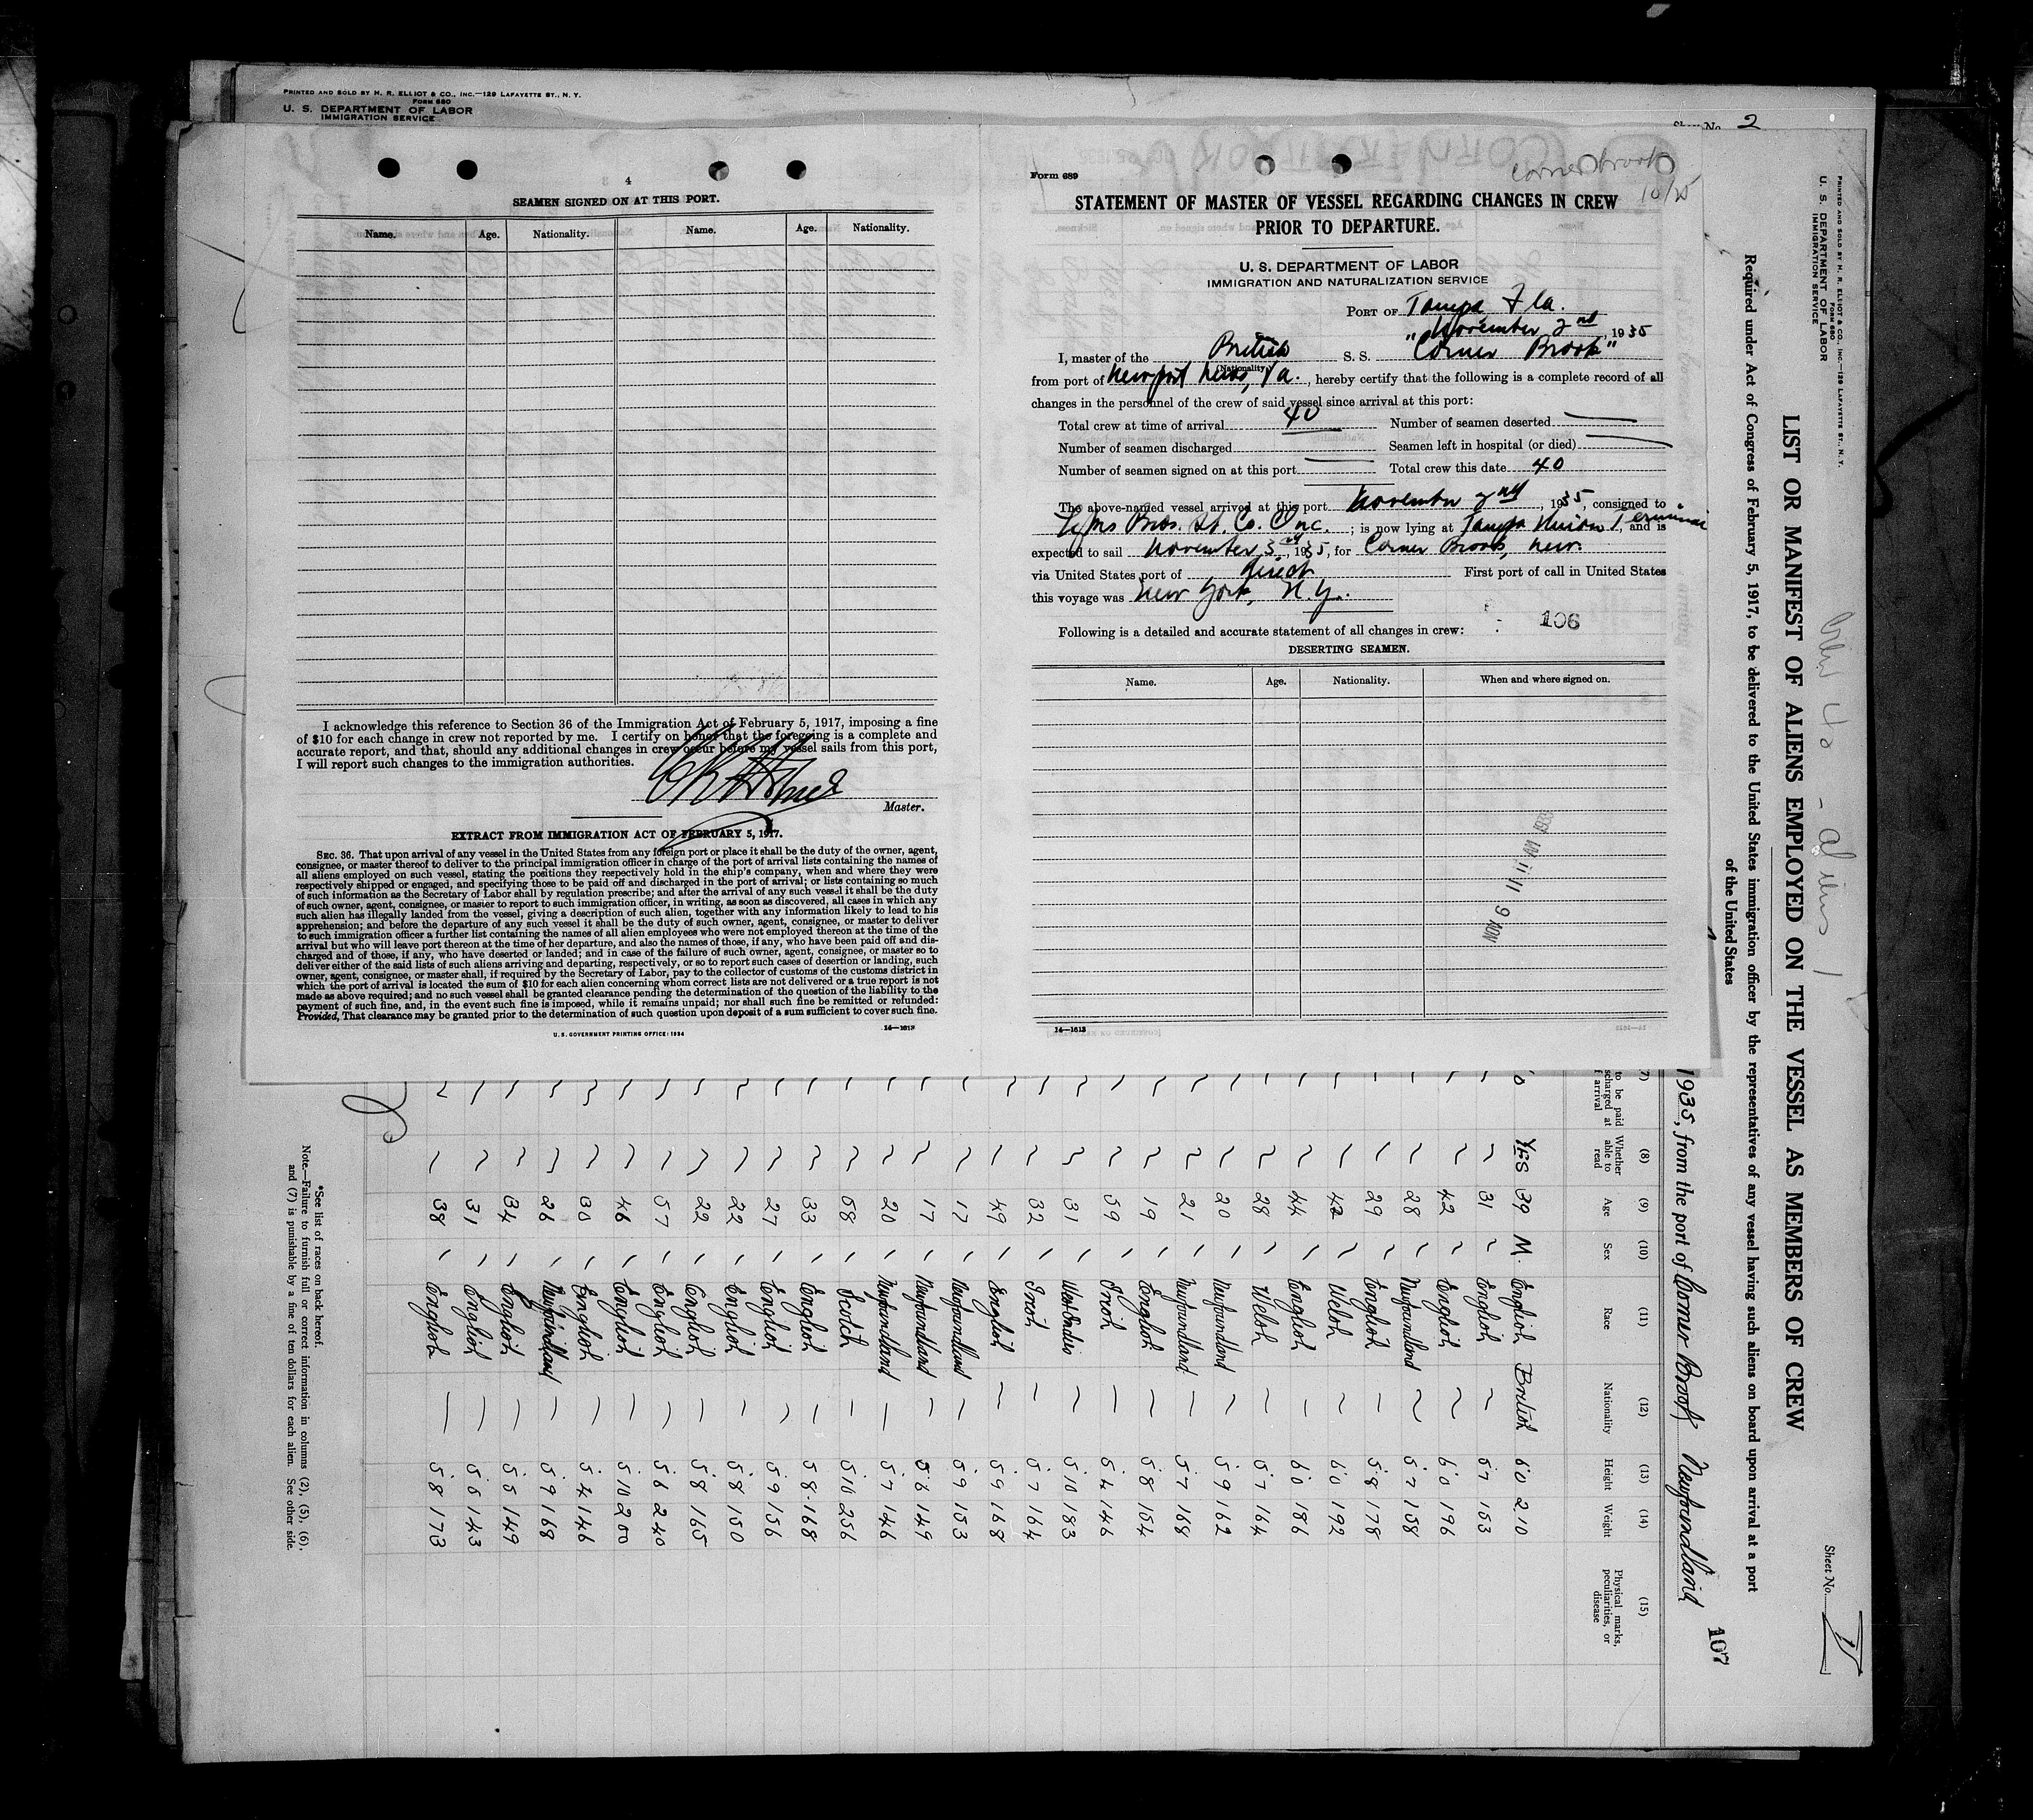 PRINTED AND SOLD BY H. R. ELLIOT & CO., INC.—129 LAFAYETTE ST., N. Y.
Form 680
U. S. DEPARTMENT OF LABOR
IMMIGRATION SERVICE
2
4
SEAMEN SIGNED ON AT THIS PORT.
Name. Age. Nationality. Name. Age. Nationality.
I acknowledge this reference to Section 36 of the Immigration Act of February 5, 1917, imposing a fine
of $10 for each change in crew not reported by me. I certify on honor that the foregoing is a complete and
accurate report, and that, should any additional changes in crew occur before my vessel sails from this port,
I will report such changes to the immigration authorities.
Master.
EXTRACT FROM IMMIGRATION ACT OF FEBRUARY 5, 1917.
SEC. 36. That upon arrival of any vessel in the United States from any foreign port or place it shall be the duty of the owner, agent,
consignee, or master thereof to deliver to the principal immigration officer in charge of the port of arrival lists containing the names of
all aliens employed on such vessel, stating the positions they respectively hold in the ship's company, when and where they were
respectively shipped or engaged, and specifying those to be paid off and discharged in the port of arrival; or lists containing so much
of such information as the Secretary of Labor shall by regulation prescribe; and after the arrival of any such vessel it shall be the duty
of such owner, agent, consignee, or master to report to such immigration officer, in writing, as soon as discovered, all cases in which any
such alien has illegally landed from the vessel, giving a description of such alien, together with any information likely to lead to his
apprehension; and before the departure of any such vessel it shall be the duty of such owner, agent, consignee, or master to deliver
to such immigration officer a further list containing the names of all alien employees who were not employed thereon at the time of the
arrival but who will leave port thereon at the time of her departure, and also the names of those, if any, who have been paid off and dis-
charged and of those, if any, who have deserted or landed; and in case of the failure of such owner, agent, consignee, or master so to
deliver either of the said lists of such aliens arriving and departing, respectively, or so to report such cases of desertion or landing, such
owner, agent, consignee, or master shall, if required by the Secretary of Labor, pay to the collector of customs of the customs district in
which the port of arrival is located the sum of $10 for each alien concerning whom correct lists are not delivered or a true report is not
made as above required; and no such vessel shall be granted clearance pending the determination of the question of the liability to the
payment of such fine, and, in the event such fine is imposed, while it remains unpaid; nor shall such fine be remitted or refunded:
Provided, That clearance may be granted prior to the determination of such question upon deposit of a sum sufficient to cover such fine.
U. S. GOVERNMENT PRINTING OFFICE: 1934 14—1613
Form 689
Corner Brook
10/25
STATEMENT OF MASTER OF VESSEL REGARDING CHANGES IN CREW
PRIOR TO DEPARTURE.
U. S. DEPARTMENT OF LABOR
IMMIGRATION AND NATURALIZATION SERVICE
PORT OF Tampa Fla.
November 2nd, 1935
I, master of the British S. S. "Corner Brook"
(Nationality)
from port of Newport News, Va., hereby certify that the following is a complete record of all
changes in the personnel of the crew of said vessel since arrival at this port:
Total crew at time of arrival 40 Number of seamen deserted —
Number of seamen discharged Seamen left in hospital (or died) —
Number of seamen signed on at this port — Total crew this date 40
The above-named vessel arrived at this port November 2nd, 1935, consigned to
Lykes Bros. St. Co. Inc.; is now lying at Tampa Union Terminal, and is
expected to sail November 3rd, 1935, for Corner Brook, New.
via United States port of direct First port of call in United States
this voyage was New York, N.Y.
Following is a detailed and accurate statement of all changes in crew: 106
DESERTING SEAMEN.
Name. Age. Nationality. When and where signed on.
NOV 9 11 11 AM 1935
14—1613
PRINTED AND SOLD BY H. R. ELLIOT & CO., INC.—129 LAFAYETTE ST., N. Y.
Form 680
U. S. DEPARTMENT OF LABOR
IMMIGRATION SERVICE
Sheet No.
LIST OR MANIFEST OF ALIENS EMPLOYED ON THE VESSEL AS MEMBERS OF CREW
Required under Act of Congress of February 5, 1917, to be delivered to the United States immigration officer by the representatives of any vessel having such aliens on board upon arrival at a port
of the United States
107
1935, from the port of Corner Brook Newfoundland
(8) (9) (10) (11) (12) (13) (14) (15)
Whether able to read Age Sex Race Nationality Height Weight Physical marks, peculiarities, or disease
YES 39 M. English British 6'0 210
31 English 5'7 153
42 English 6'0 196
28 Newfoundland 5'7 158
29 English 5'8 178
42 Welsh 6'0 192
44 English 6'0 186
28 Welsh 5'7 164
20 Newfoundland 5'9 162
21 Newfoundland 5'7 168
19 English 5'8 154
59 Irish 5'4 146
31 West Indies 5'10 183
32 Irish 5'7 164
49 English 5'9 168
17 Newfoundland 5'9 153
17 Newfoundland 5'6 149
20 Newfoundland 5'7 146
58 Scotch 5'10 256
33 English 5'8 168
27 English 5'9 156
22 English 5'8 150
22 English 5'8 165
57 English 5'6 240
46 English 5'10 200
30 English 5'4 146
26 Newfoundland 5'9 168
34 English 5'5 149
31 English 5'6 143
38 English 5'8 173
*See list of races on back hereof.
Note.—Failure to furnish full or correct information in columns (2), (5), (6),
and (7) is punishable by a fine of ten dollars for each alien. See other side.